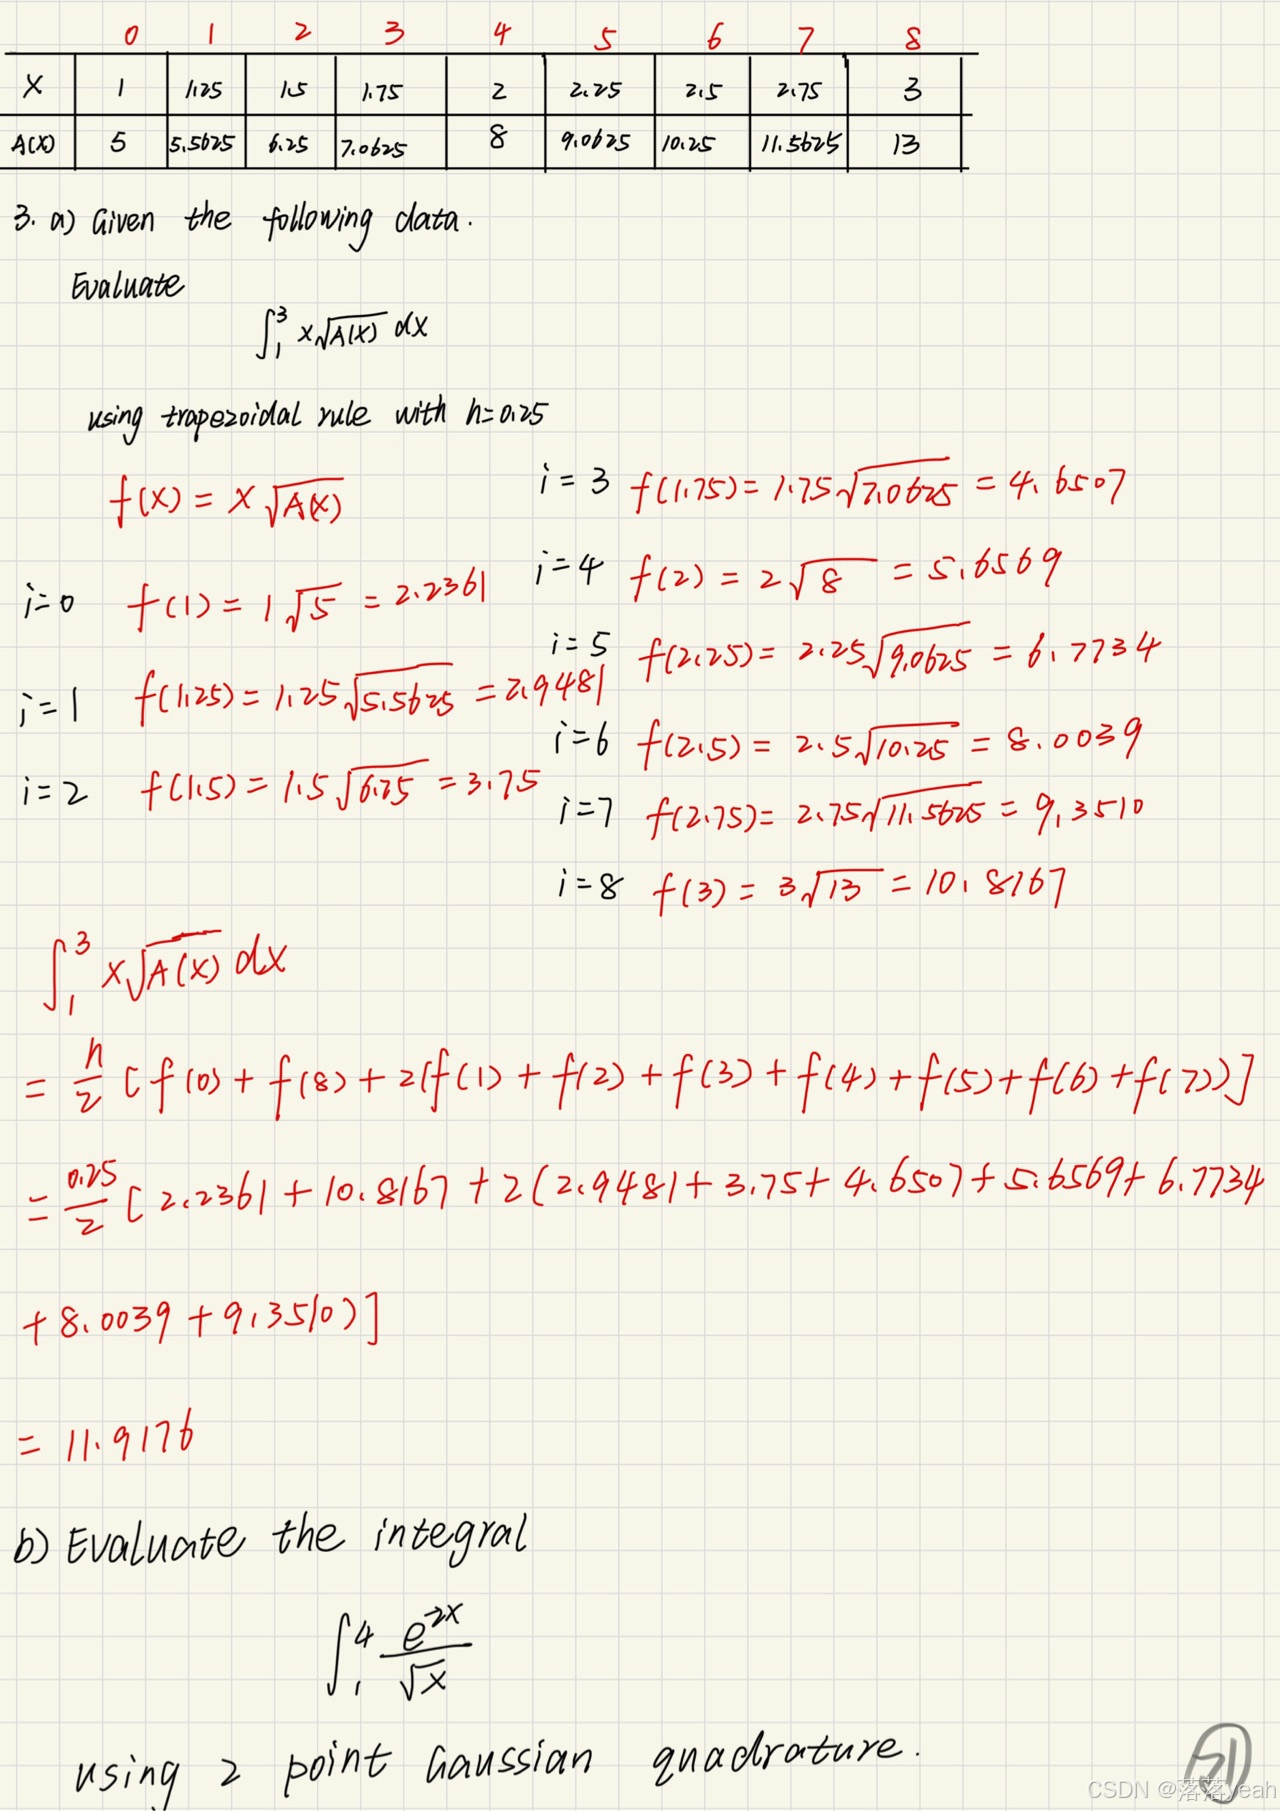 0 1 2 3 4 5 6 7 8
X 1 1.25 1.5 1.75 2 2.25 2.5 2.75 3
A(X) 5 5.5625 6.25 7.0625 8 9.0625 10.25 11.5625 13
3. a) Given the following data.
Evaluate
∫₁³ x√A(X) dx
using trapezoidal rule with h=0.25
f(X) = X √A(X)
i=0 f(1) = 1√5 = 2.2361
i=1 f(1.25) = 1.25√5.5625 = 2.9481
i=2 f(1.5) = 1.5√6.25 = 3.75
i=3 f(1.75) = 1.75√7.0625 = 4.6507
i=4 f(2) = 2√8 = 5.6569
i=5 f(2.25) = 2.25√9.0625 = 6.7734
i=6 f(2.5) = 2.5√10.25 = 8.0039
i=7 f(2.75) = 2.75√11.5625 = 9.3510
i=8 f(3) = 3√13 = 10.8167
∫₁³ X√A(X) dx
= h/2 [f(0) + f(8) + 2(f(1) + f(2) + f(3) + f(4) + f(5) + f(6) + f(7))]
= 0.25/2 [2.2361 + 10.8167 + 2(2.9481 + 3.75 + 4.6507 + 5.6569 + 6.7734
+ 8.0039 + 9.3510)]
= 11.9176
b) Evaluate the integral
∫₁⁴ e⁻²ˣ/√x
using 2 point Gaussian quadrature.
CSDN @落落yeah